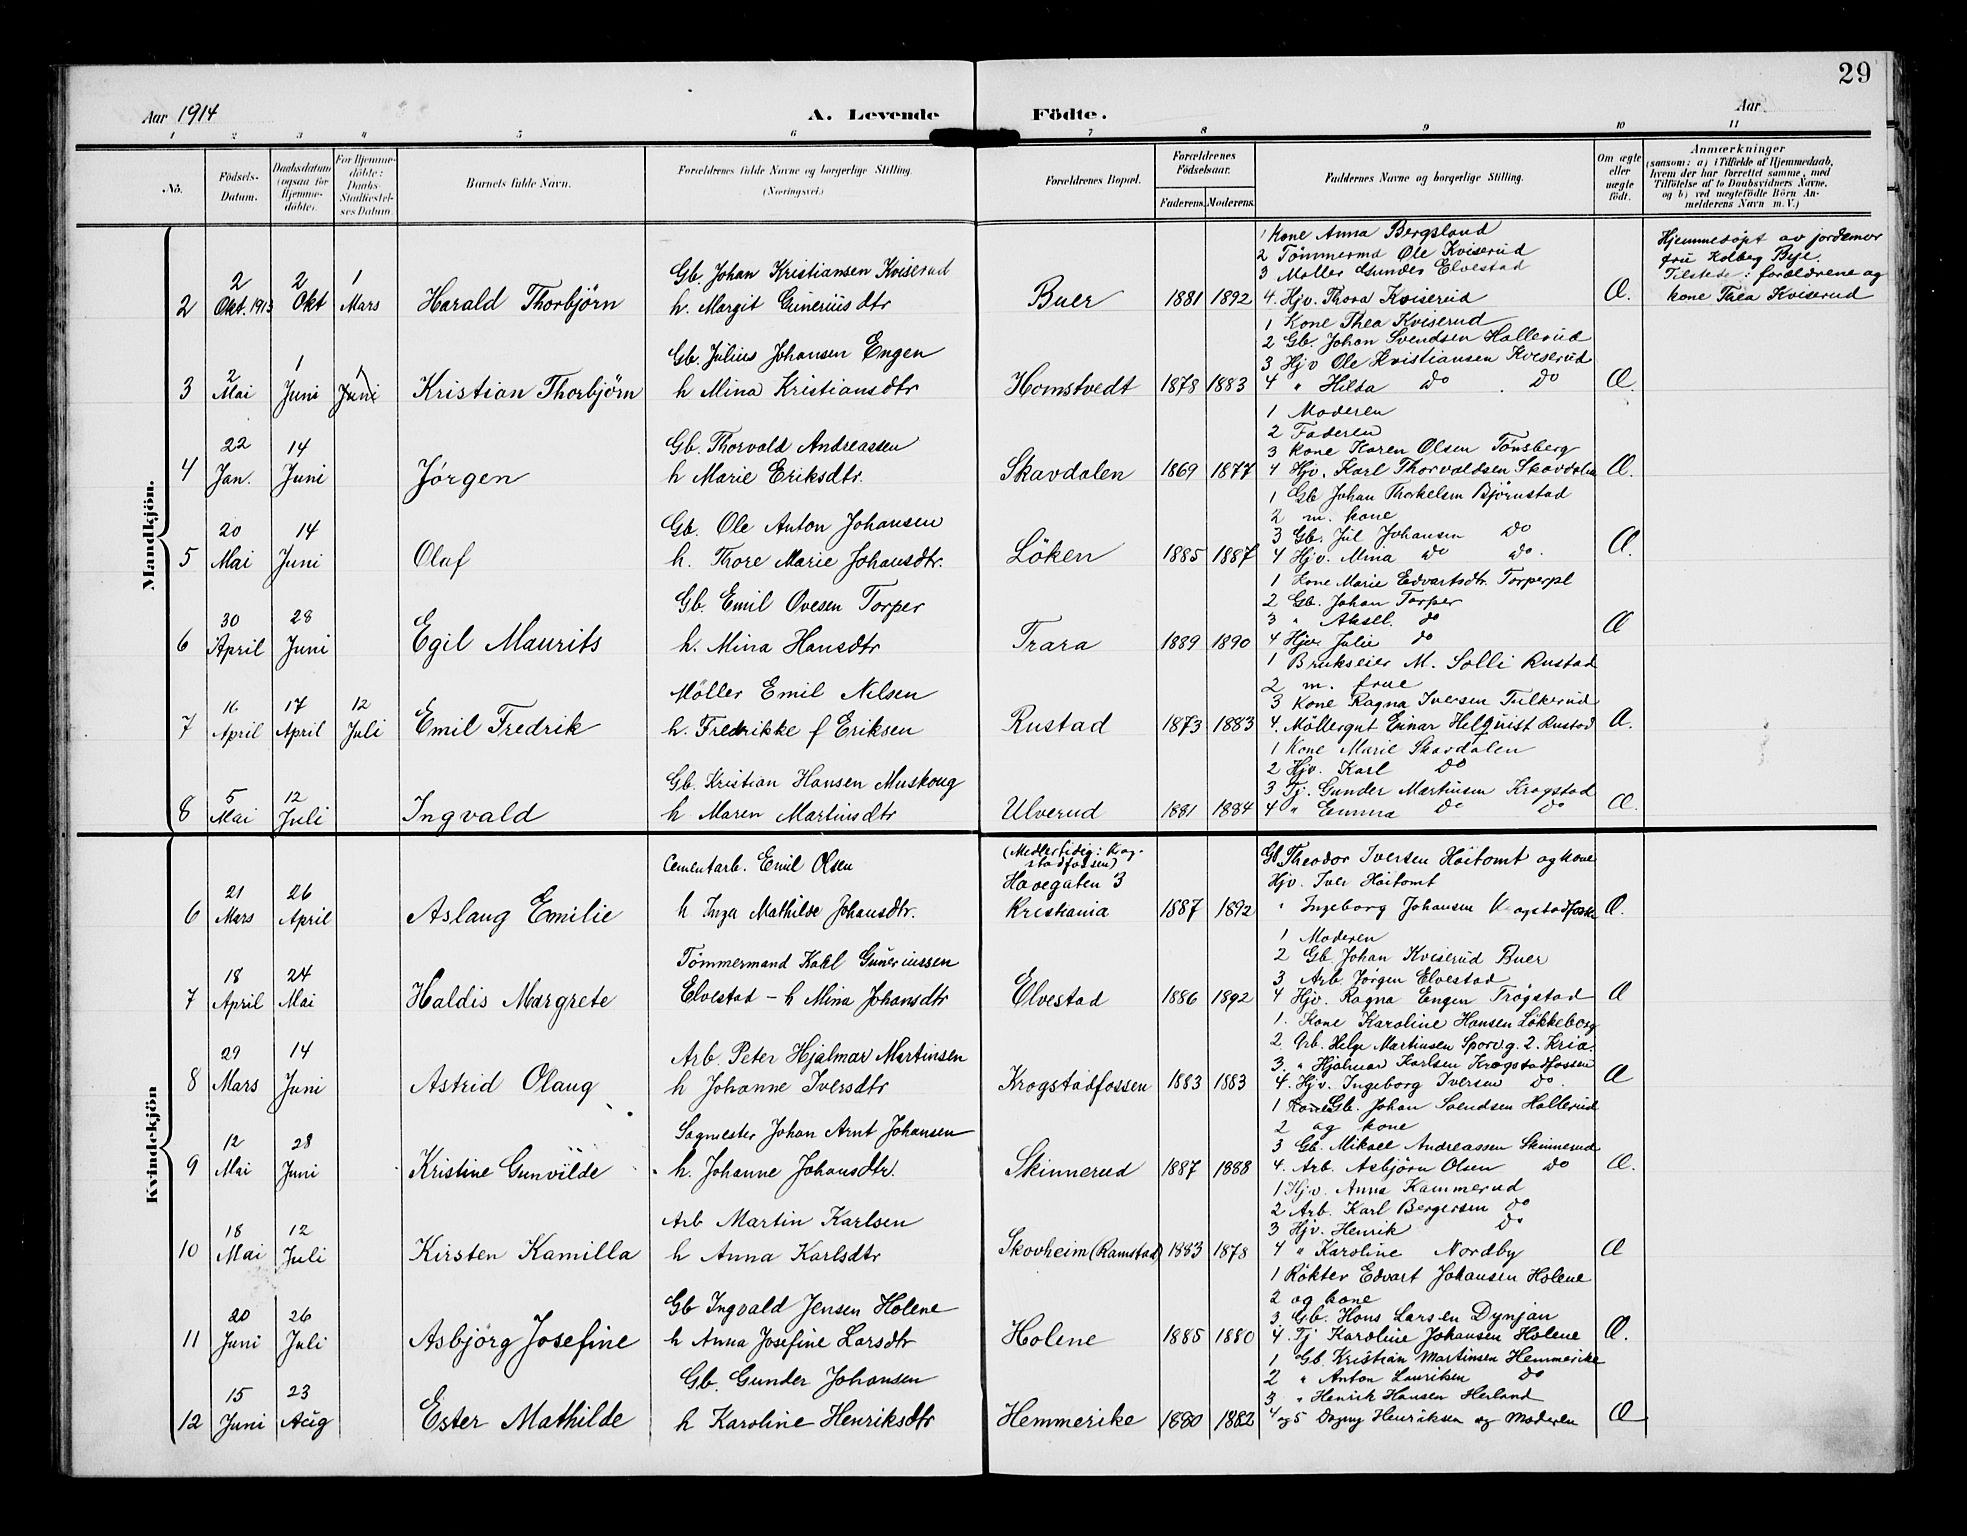 29
Aar 1914 A. Levende Födte. Aar
1 2 3 4 5 6 7 8 9 10 11
No. Födsels-Datum. Daabsdatum (ogsaa for Hjemmedöbte). For Hjemmedöbte: Daabs-Stadfæstelses Datum. Barnets fulde Navn. Forældrenes fulde Navne og borgerlige Stilling. (Næringsvei.) Forældrenes Bopæl. Forældrenes Födselsaar. Faderens. Moderens. Faddernes Navne og borgerlige Stilling. Om ægte eller uægte födt. Anmærkninger (saasom: a) i Tilfælde af Hjemmedaab, hvem der har forrettet samme, med Tilföielse af to Daabsvidners Navne, og b) ved uægtefödte Börn Anmelderens Navn m. V.)
Mandkjön.
1 Kone Anna Bergsland
2 Tömmermd Ole Kviserud
3 Møller Gunder Elvestad
2 2 1 Gb. Johan Kristiansen Kviserud
2 Okt. 1913 Okt Mars Harald Thorbjörn h. Margit Gunerius dtr Buer 1881 1892 4. Hjv. Thora Kviserud Æ.
Hjemmedöpt av jordemor
fru Kolberg Bye.
Tilstede: forældrene og
kone Thea Kviserud
1 Kone Thea Kviserud
2 Gb. Johan Svendsen Hallerud
3 Hjv Ole Kristiansen Kviserud
2 1 1 Gb. Julius Johansen Engen
3 Mai Juni Juni Kristian Thorbjörn h Mina Kristiansdtr Homstvedt 1878 1883 4 " Hilda do do Æ.
1 Moderen
2 Faderen
3 Kone Karen Olsen Tønsberg
22 14 Gb. Thorvald Andreassen
4 Jan. Juni Jørgen h Marie Eriksdtr. Skavdalen 1869 1877 4 Hjv. Karl Thorvaldsen Skavdalen Æ.
1 Gb Johan Thorkelsen Bjørnstad
2 m. kone
3 Gb. Jul Johansen do
20 14 Gb. Ole Anton Johansen
5 Mai Juni Olaf h. Thore Marie Johansdtr. Löken 1885 1887 4 Hjv. Mina do do. Æ.
1 Kone Marie Edvartsdtr. Torperpl
2 Gb. Johan Torper
3 " Aksel do
30 28 Gb. Emil Ovesen Torper
6 April Juni Egil Maurits h. Mina Hansdtr Trara 1889 1890 4 Hjv. Julie do Æ
1 Brukseier M. Solli Rustad
2 m. frue
3 Kone Ragna Iversen Tulkerud
16 17 12 Möller Emil Nilsen
7 April April Juli Emil Fredrik h. Fredrikke f Eriksen Rustad 1873 1883 4. Möllergut Einar Helquist Rustad Æ.
1 Kone Marie Skavdalen
2 Hjv. Karl do
3 Tj. Gunder Martinsen Krogstad
5 12 Gb. Kristian Hansen Muskoug
8 Mai Juli Ingvald h Maren Martinsdtr Ulverud 1881 1884 4 " Emma do do Æ.
Kvindekjön
Cementarb. Emil Olsen (Medlertidig: Kogstadfossen) Gb Theodor Iversen Höitomt og kone
21 26 Havegaten 3 Hjv. Iver Höitomt
6 Mars April Aslaug Emilie h Inga Mathilde Johansdtr. Kristiania 1887 1892 " Ingeborg Johansen Kragstadfossen Æ.
1 Moderen
2 Gb. Johan Kviserud Buer
3 Arb. Jörgen Elvestad
18 24 Tömmermand Karl Guneriussen
7 April Mai Haldis Margrete Elvestad - h Mina Johansdtr Elvestad 1886 1892 4 Hjv. Ragna Engen Trögstad Æ
1. Kone Karoline Hansen Løkkeborg
2. Arb. Helge Martinsen Sporvg. 2. Kria
3. " Hjalmar Karlsen Krogstadfossen
29 14 Arb Peter Hjalmar Martinsen
8 Mars Juni Astrid Olaug h Johanne Iversdtr Krogstadfossen 1883 1883 4. Hjv. Ingeborg Iversen do. Æ
1 Kone Gb. Johan Svendsen Hallerud
2 og kone
3 Gb. Mikael Andreassen Skinnerud
12 28 Sagmester Johan Arnt Johansen
9 Mai Juni Kristine Gunvilde h. Johanne Johansdtr. Skinnerud 1887 1888 4. Arb. Asbjörn Olsen do Æ.
1 Hjv. Anna Kammerud
2 Arb. Karl Bergersen do
3 Hjv. Henrik do
18 12 Arb Martin Karlsen
10 Mai Juli Kirsten Kamilla h Anna Karlsdtr Skovheim (Ramstad) 1883 1878 4 " Karoline Nordby Æ
1 Rökter Edvart Johansen Holene
2 og kone
3 Gb. Hans Larsen Dynjan
20 26 Gb Ingvald Jensen Holene
11 Juni Juli Asbjörg Josefine h Anna Josefine Larsdtr Holene 1885 1880 4. Tj Karoline Johansen Holene Æ.
1 Gb. Kristian Martinsen Hemmerike
2 " Anton Lauritsen do
3 " Henrik Hansen Herland
15 23 Gb. Gunder Johansen
12 Juni Aug Ester Mathilde h Karoline Henriksdtr Hemmerike 1880 1882 4 og 5 Dagny Henriksen og Moderen Æ